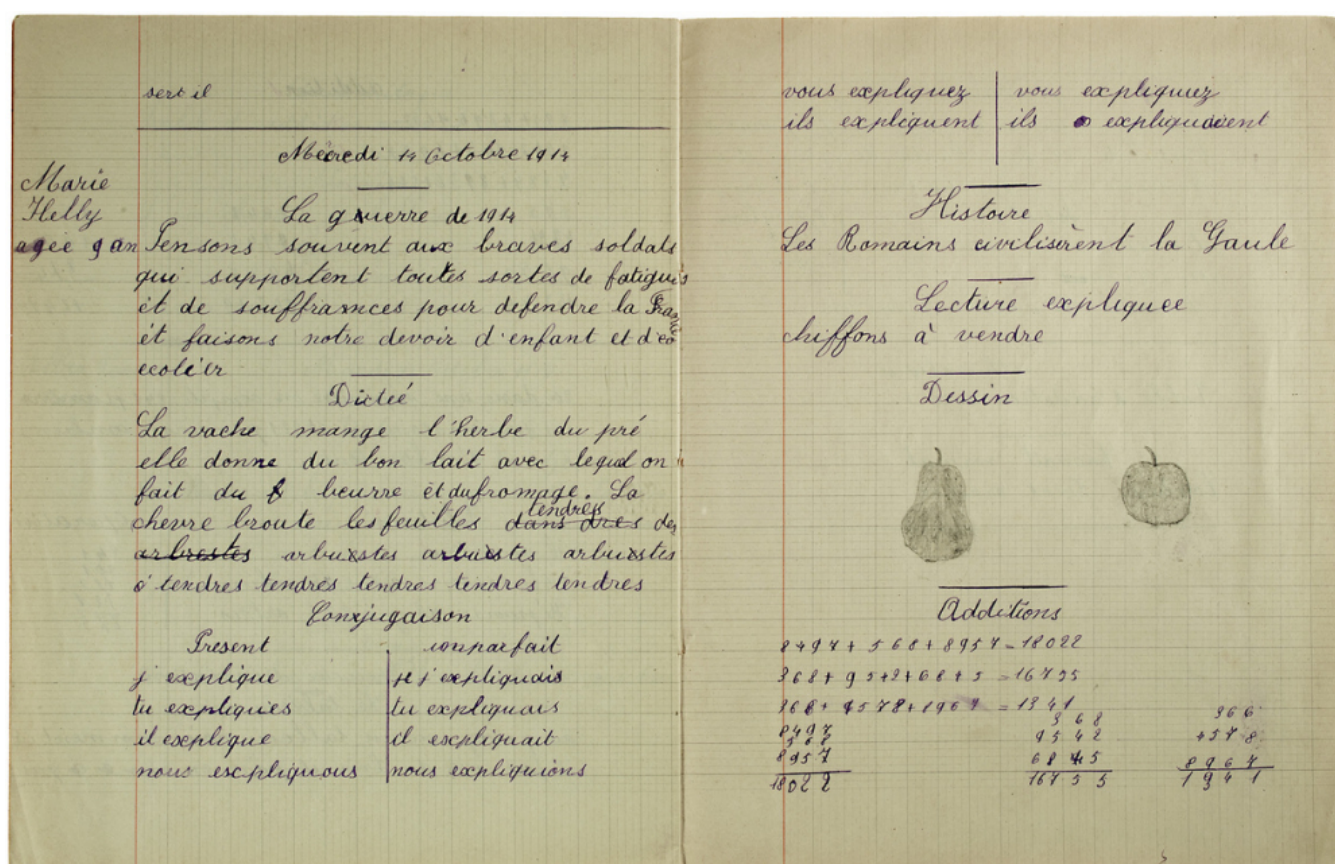 sert il
Mécredi 14 Octobre 1914
Marie
Helly
agée 9 an
La guerre de 1914
Pensons souvent aux braves soldats
qui supportent toutes sortes de fatigues
et de souffrances pour defendre la France
et faisons notre devoir d'enfant et d'éco
ecolier
Dictée
La vache mange l'herbe du pré
elle donne du bon lait avec lequel on
fait du f beurre et du fromage. La
tendres
chevre broute les feuilles dans dres des
arbrestes arbustes arbustes arbustes
tendres tendres tendres tendres
Conjugaison
Present imparfait
j explique je j'expliquais
tu expliques tu expliquais
il explique il expliquait
nous expliquons nous expliquions
vous expliquez vous expliquiez
ils expliquent ils expliquaient
Histoire
Les Romains civilisèrent la Gaule
Lecture expliquee
chiffons à vendre
Dessin
Additions
8497 + 568 + 8957 = 18022
368 + 95+2+68+5 = 16755
368+ 4578+1967 =1341
8497 368 366
568 9542 4578
8957 6845 8967
18022 16755 1941